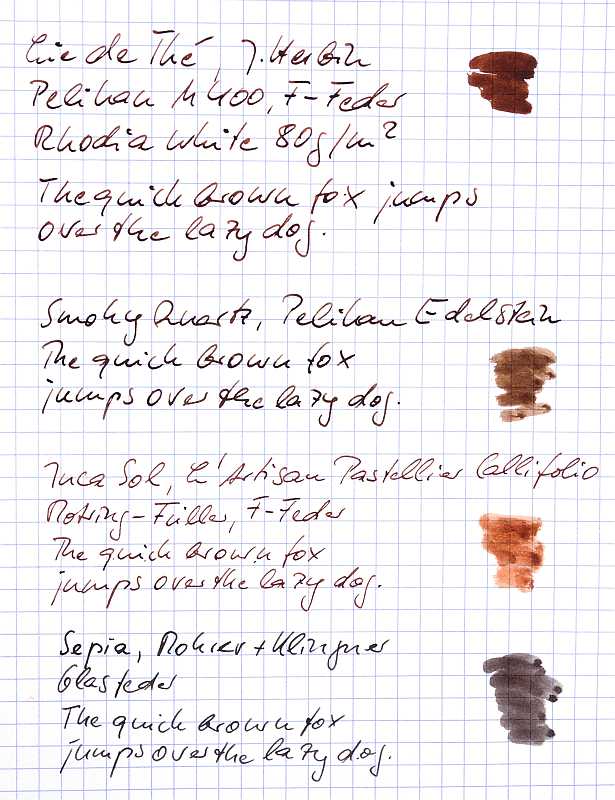 Lie de Thé, J. Herbin
Pelikan M400, F-Feder
Rhodia White 80g/m²
The quick brown fox jumps
over the lazy dog.
Smoky Quartz, Pelikan Edelstein
The quick brown fox
jumps over the lazy dog.
Inca Sol, L'Artisan Pastellier Callifolio
Rotring-Füller, F-Feder
The quick brown fox
jumps over the lazy dog.
Sepia, Rohrer + Klingner
Glasfeder
The quick brown fox
jumps over the lazy dog.